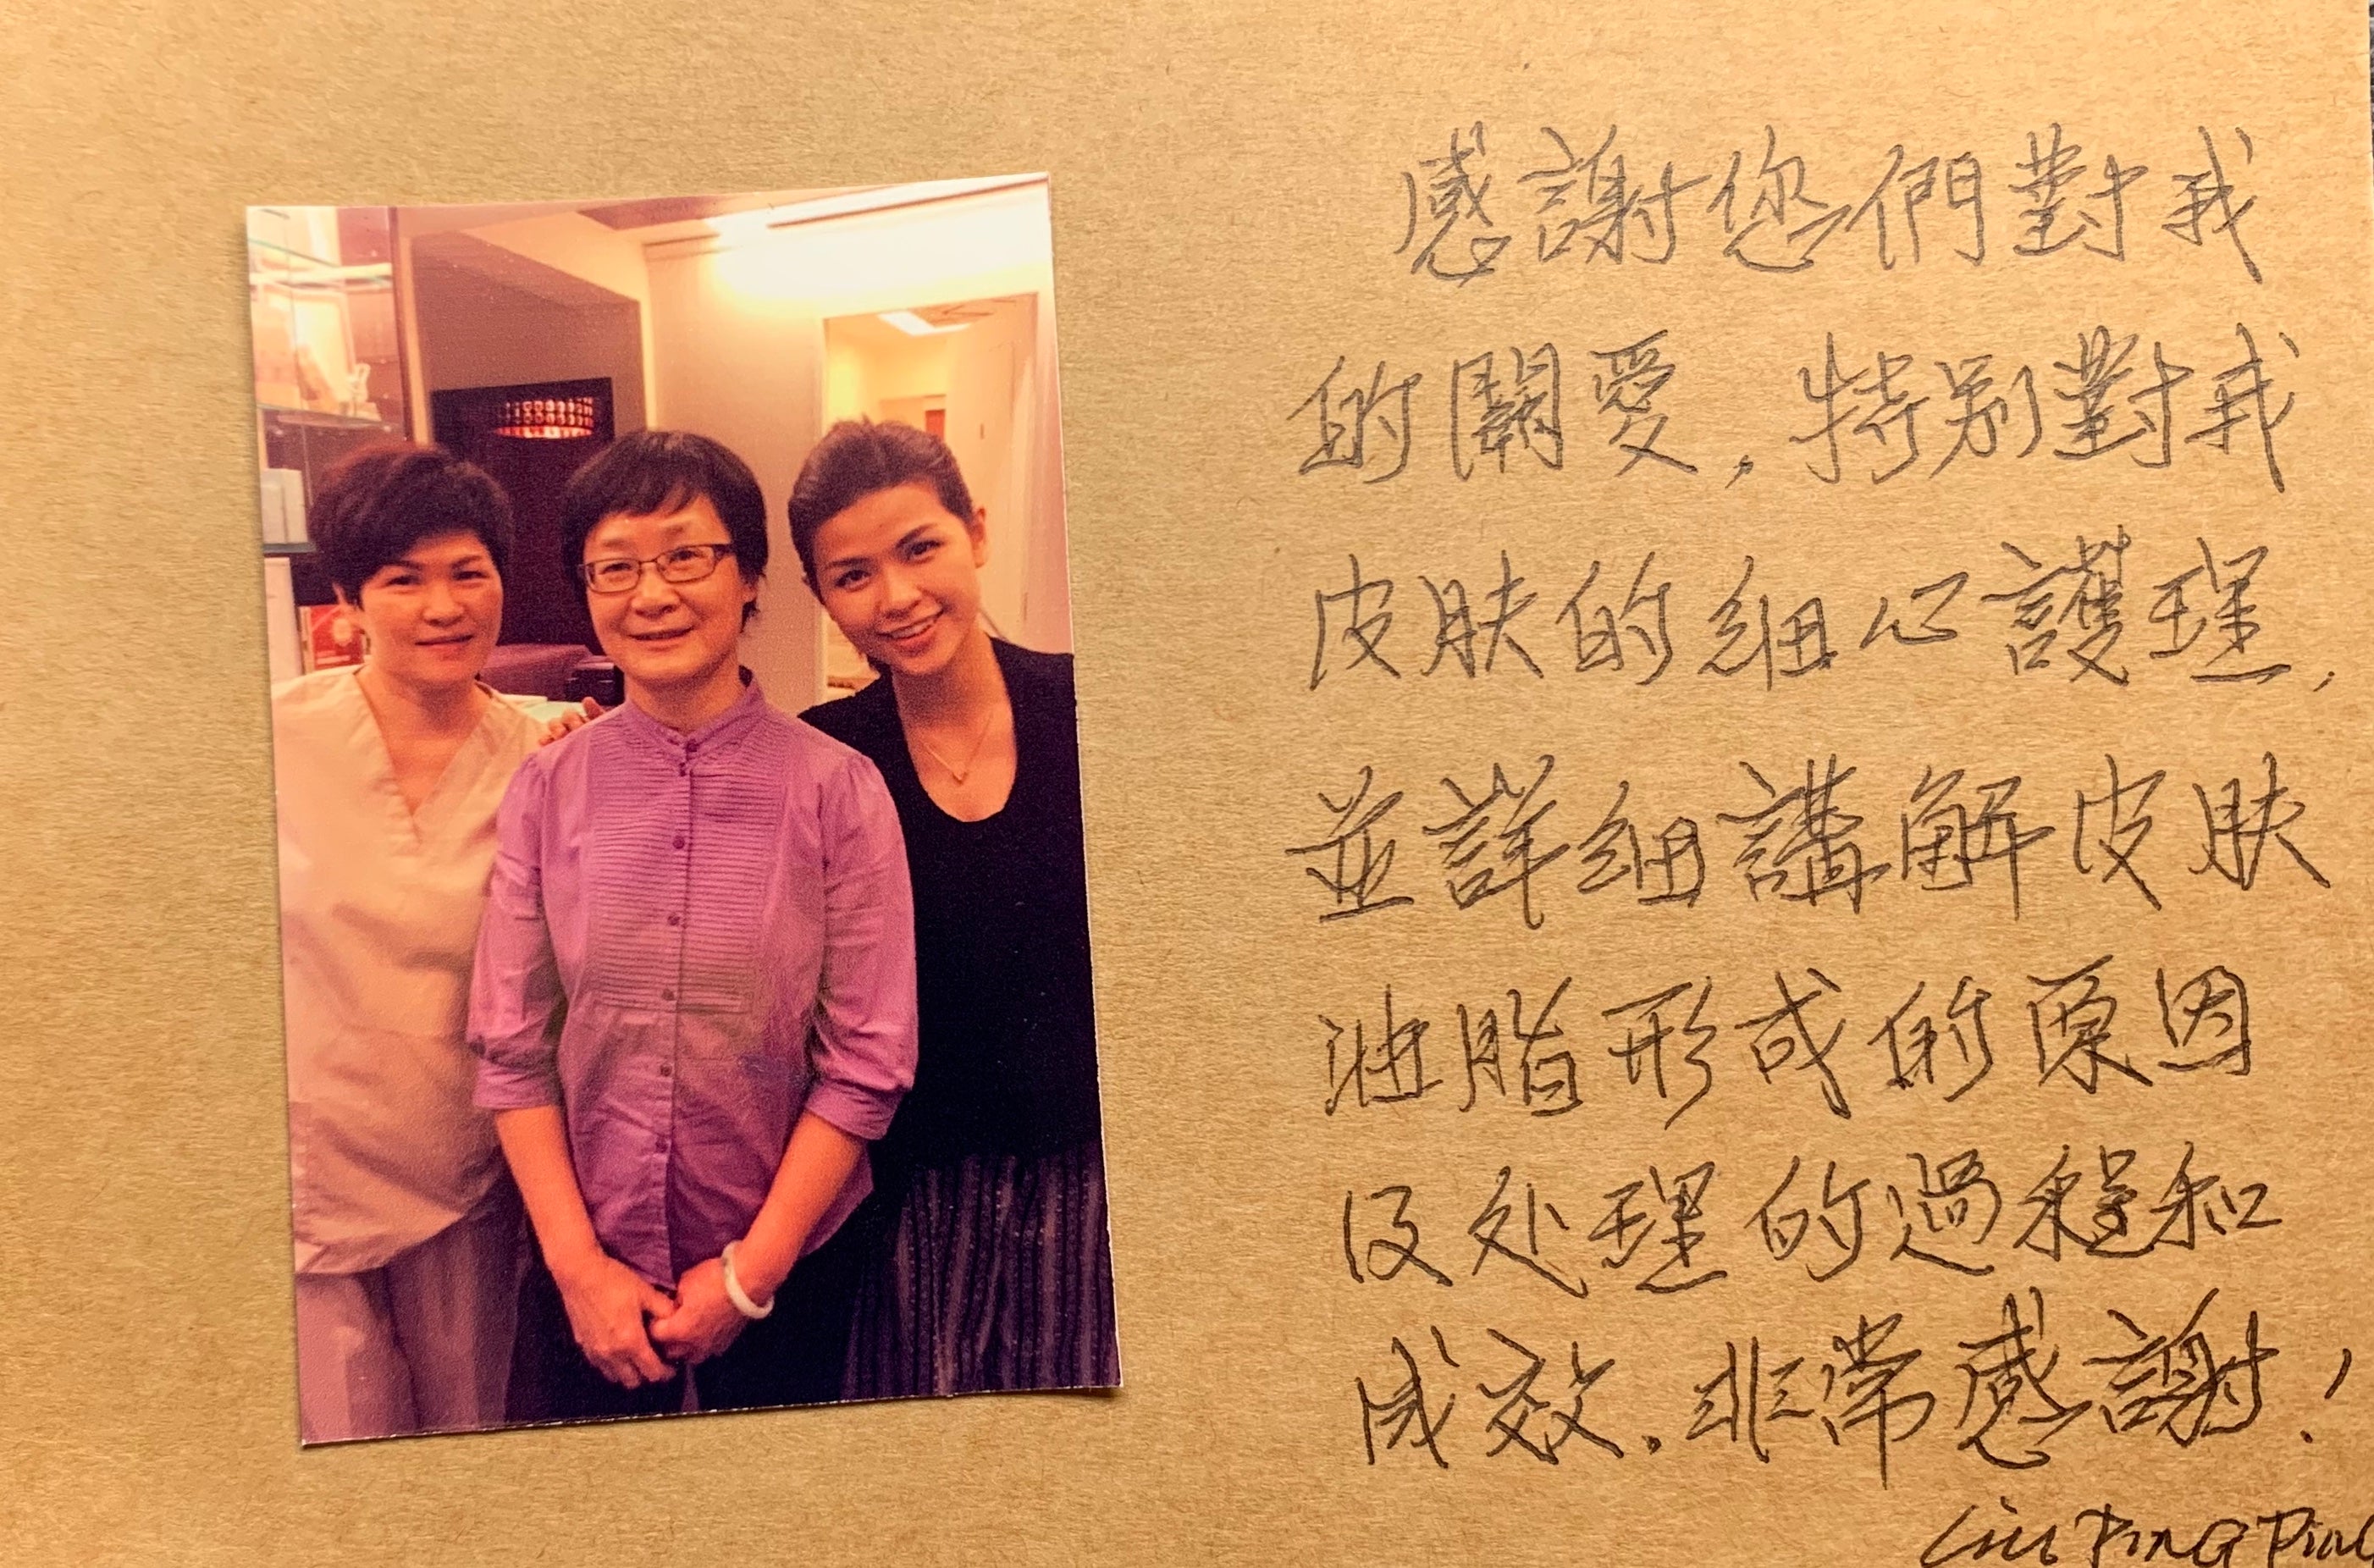 感謝您們對我
的關愛,特别對我
皮肤的細心護理,
並詳細講解皮肤
油脂形成的原因
及处理的過程和
成效.非常感謝!